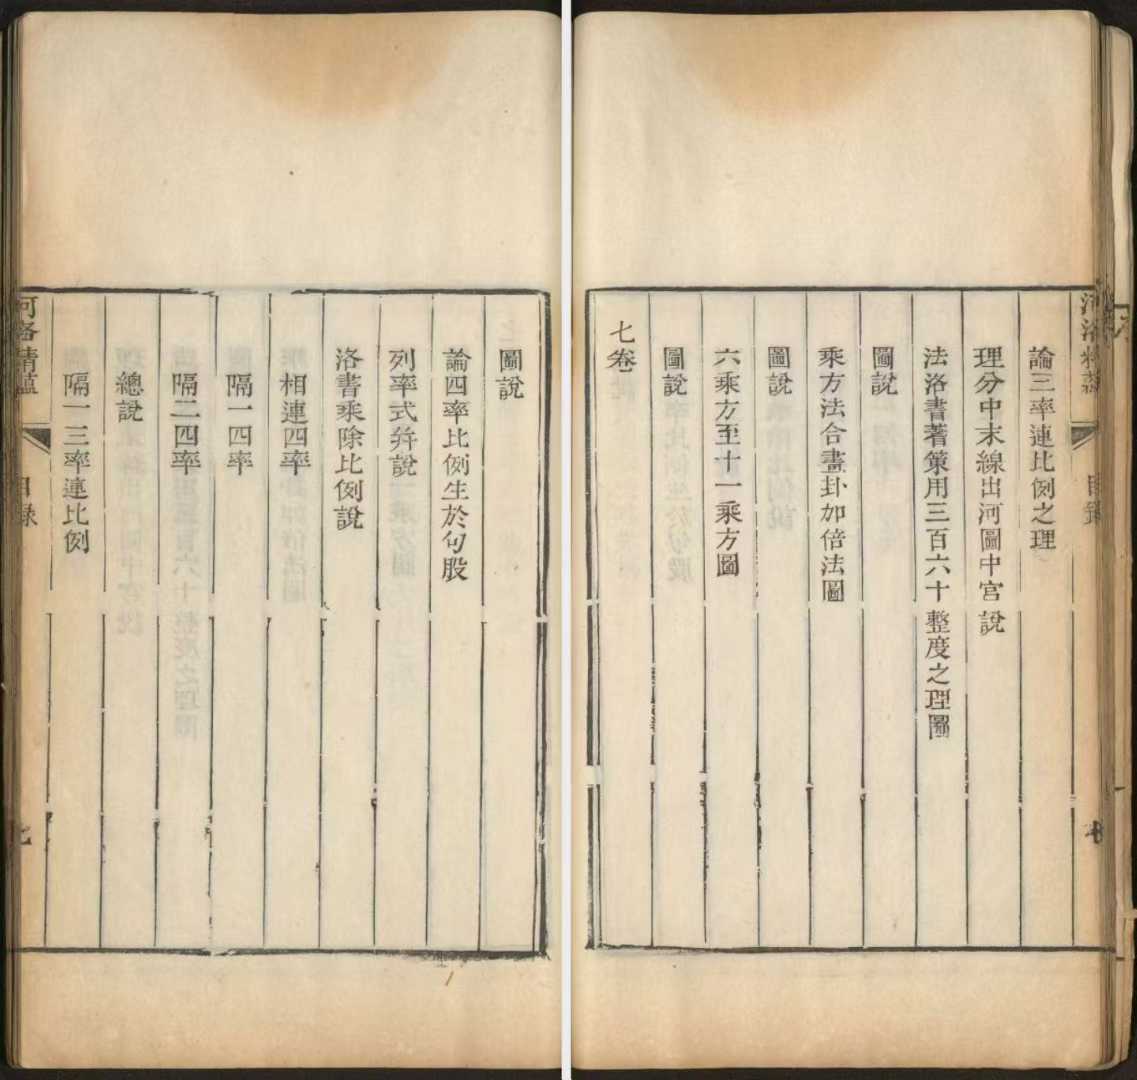 圖說
論四率比例生於句股
列率式幷說
洛書乘除比例說
相連四率
隔一四率
隔二四率
總說
隔一三率連比例
河洛精蘊 目錄 七
河洛精蘊 目錄 七
論三率連比例之理
理分中末線出河圖中宮說
法洛書著策用三百六十整度之理圖
圖說
乘方法合畫卦加倍法圖
圖說
六乘方至十一乘方圖
圖說
七卷